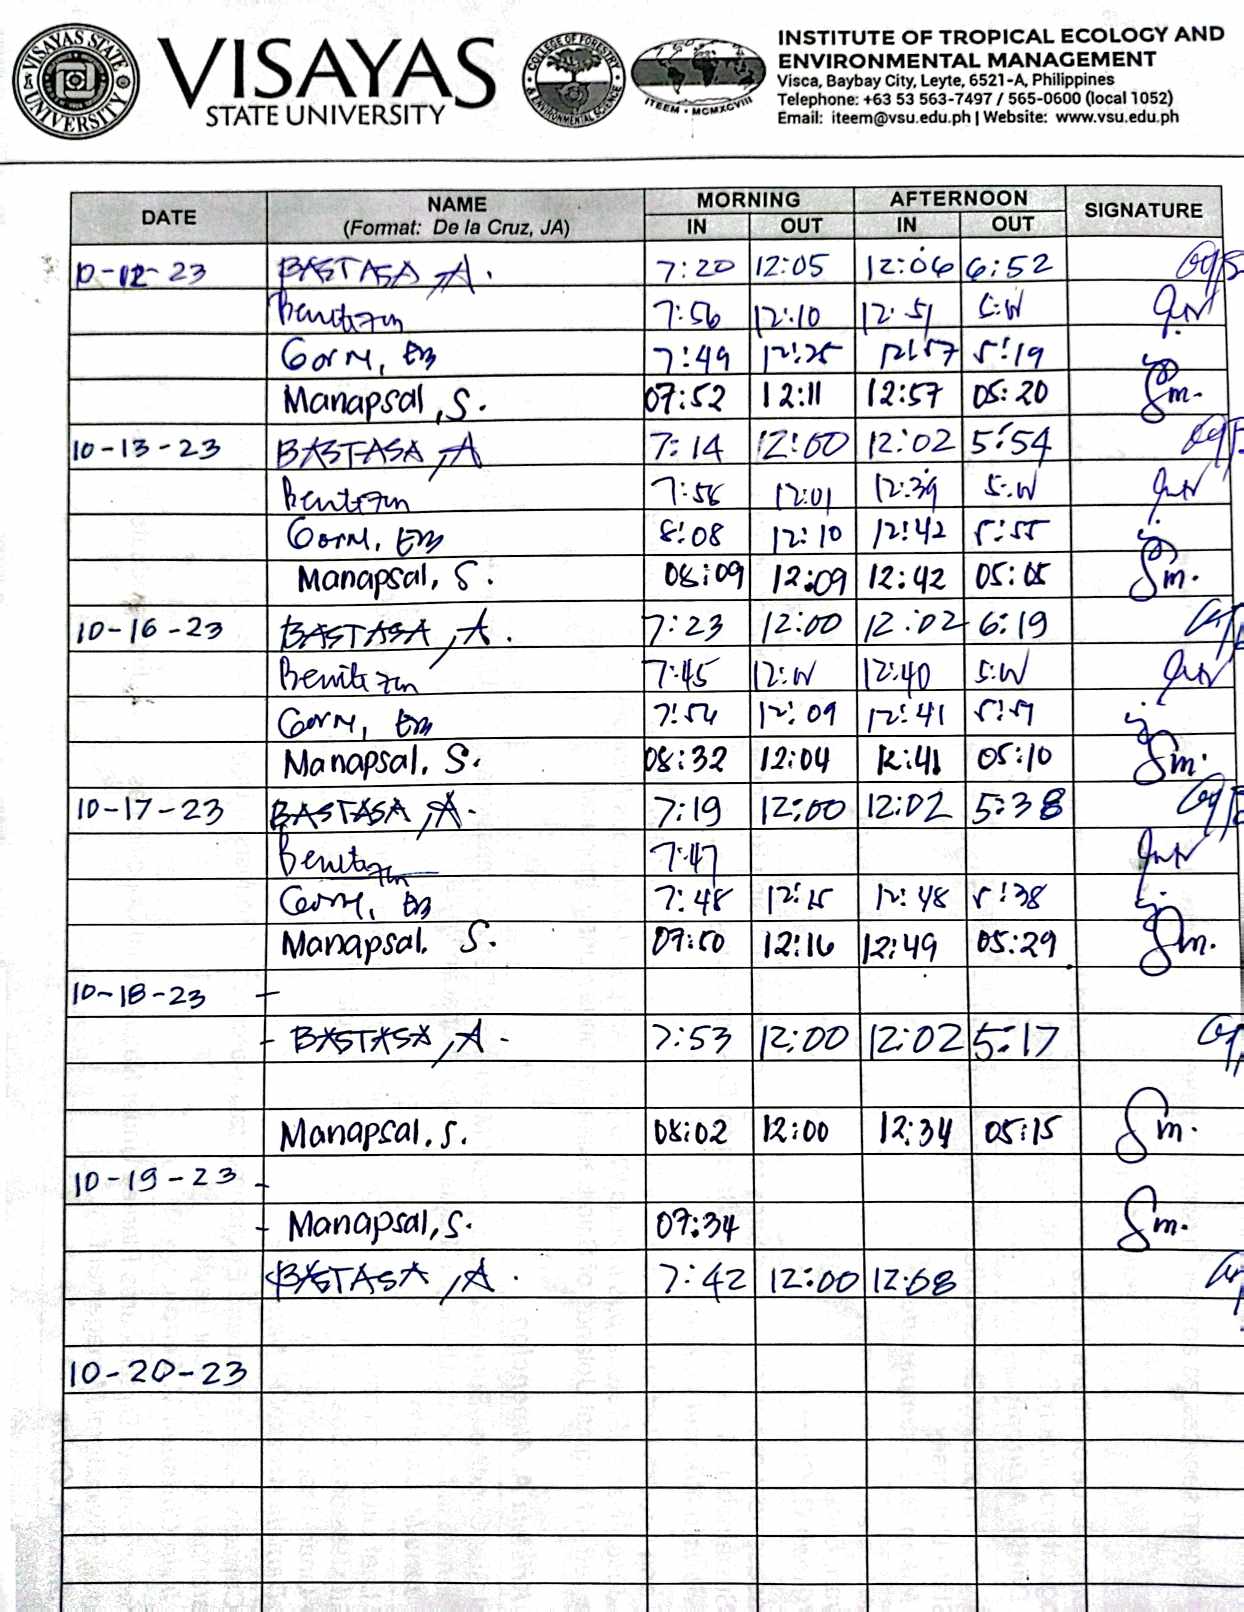 VISAYAS STATE UNIVERSITY
VISAYAS
STATE UNIVERSITY
COLLEGE OF FORESTRY & ENVIRONMENTAL SCIENCE
ITEEM • MCMXCVIII
INSTITUTE OF TROPICAL ECOLOGY AND
ENVIRONMENTAL MANAGEMENT
Visca, Baybay City, Leyte, 6521-A, Philippines
Telephone: +63 53 563-7497 / 565-0600 (local 1052)
Email: iteem@vsu.edu.ph | Website: www.vsu.edu.ph
DATE NAME MORNING AFTERNOON SIGNATURE
(Format: De la Cruz, JA) IN OUT IN OUT
10-12-23 BASTASA, A. 7:20 12:05 12:06 6:52
7:56 12:10 12:51
7:49 12:25 12:57 5:19
Manapsal, S. 07:52 12:11 12:57 05:20 Sm.
10-13-23 BASTASA, A 7:14 12:00 12:02 5:54
7:56 12:01 12:39
8:08 12:10 12:42 5:55
Manapsal, S. 08:09 12:09 12:42 05:05 Sm.
10-16-23 BASTASA, A. 7:23 12:00 12:02 6:19
7:45 12:40
12:09 12:41
Manapsal, S. 08:32 12:04 12:41 05:10 Sm.
10-17-23 BASTASA, A. 7:19 12:00 12:02 5:38
7:47
7:48 12:15 12:48 5:38
Manapsal, S. 07:50 12:16 12:49 05:29 Sm.
10-18-23 -
- BASTASA, A - 7:53 12:00 12:02 5:17
Manapsal, S. 08:02 12:00 12:34 05:15 Sm.
10-19-23 -
- Manapsal, S. 07:34 Sm.
BASTASA, A. 7:42 12:00
10-20-23